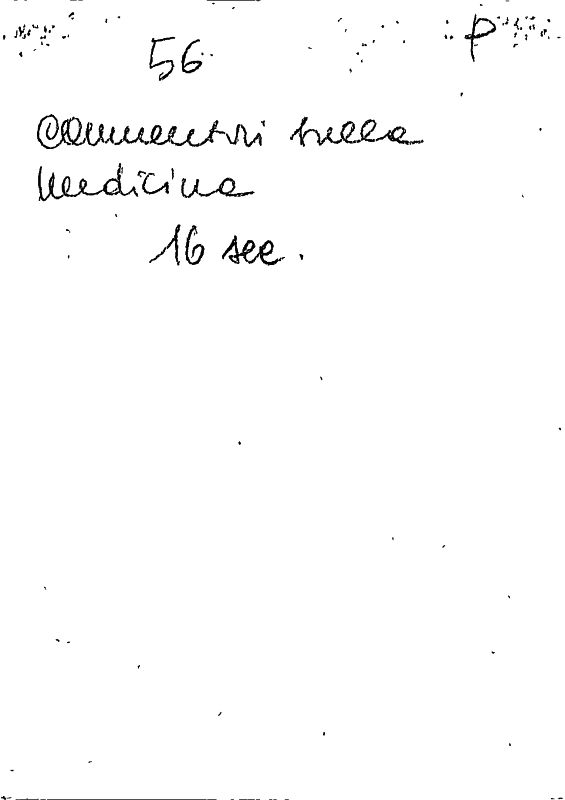 56 P
Commentari sulla
Medicina
16 sec.